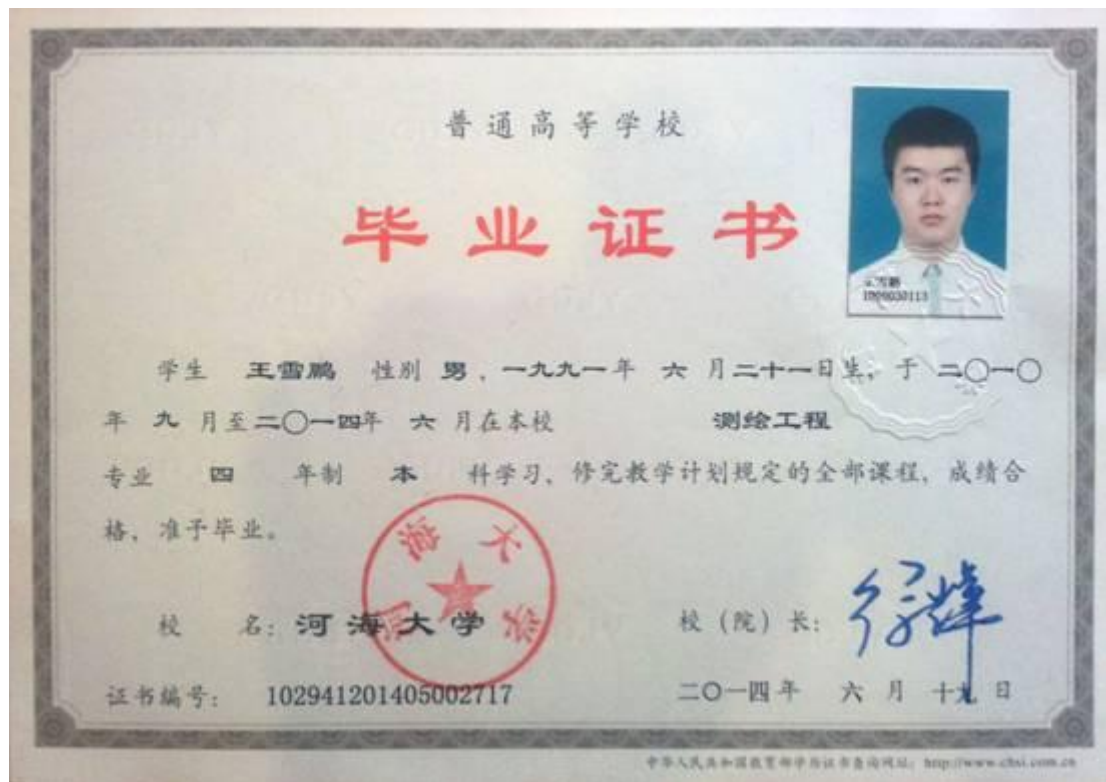 普通高等学校
毕业证书
学生 王雪鹏 性别 男、一九九一年 六 月二十一日生，于 二〇一〇
年 九 月至二〇一四年 六 月在本校 测绘工程
专业 四 年制 本 科学习、修完教学计划规定的全部课程，成绩合
格、准予毕业。
河海大学
校 名：河海大学
校（院）长：
证书编号： 102941201405002717
二〇一四年 六 月 十九 日
中华人民共和国教育部学历证书查询网址：http://www.chsi.com.cn